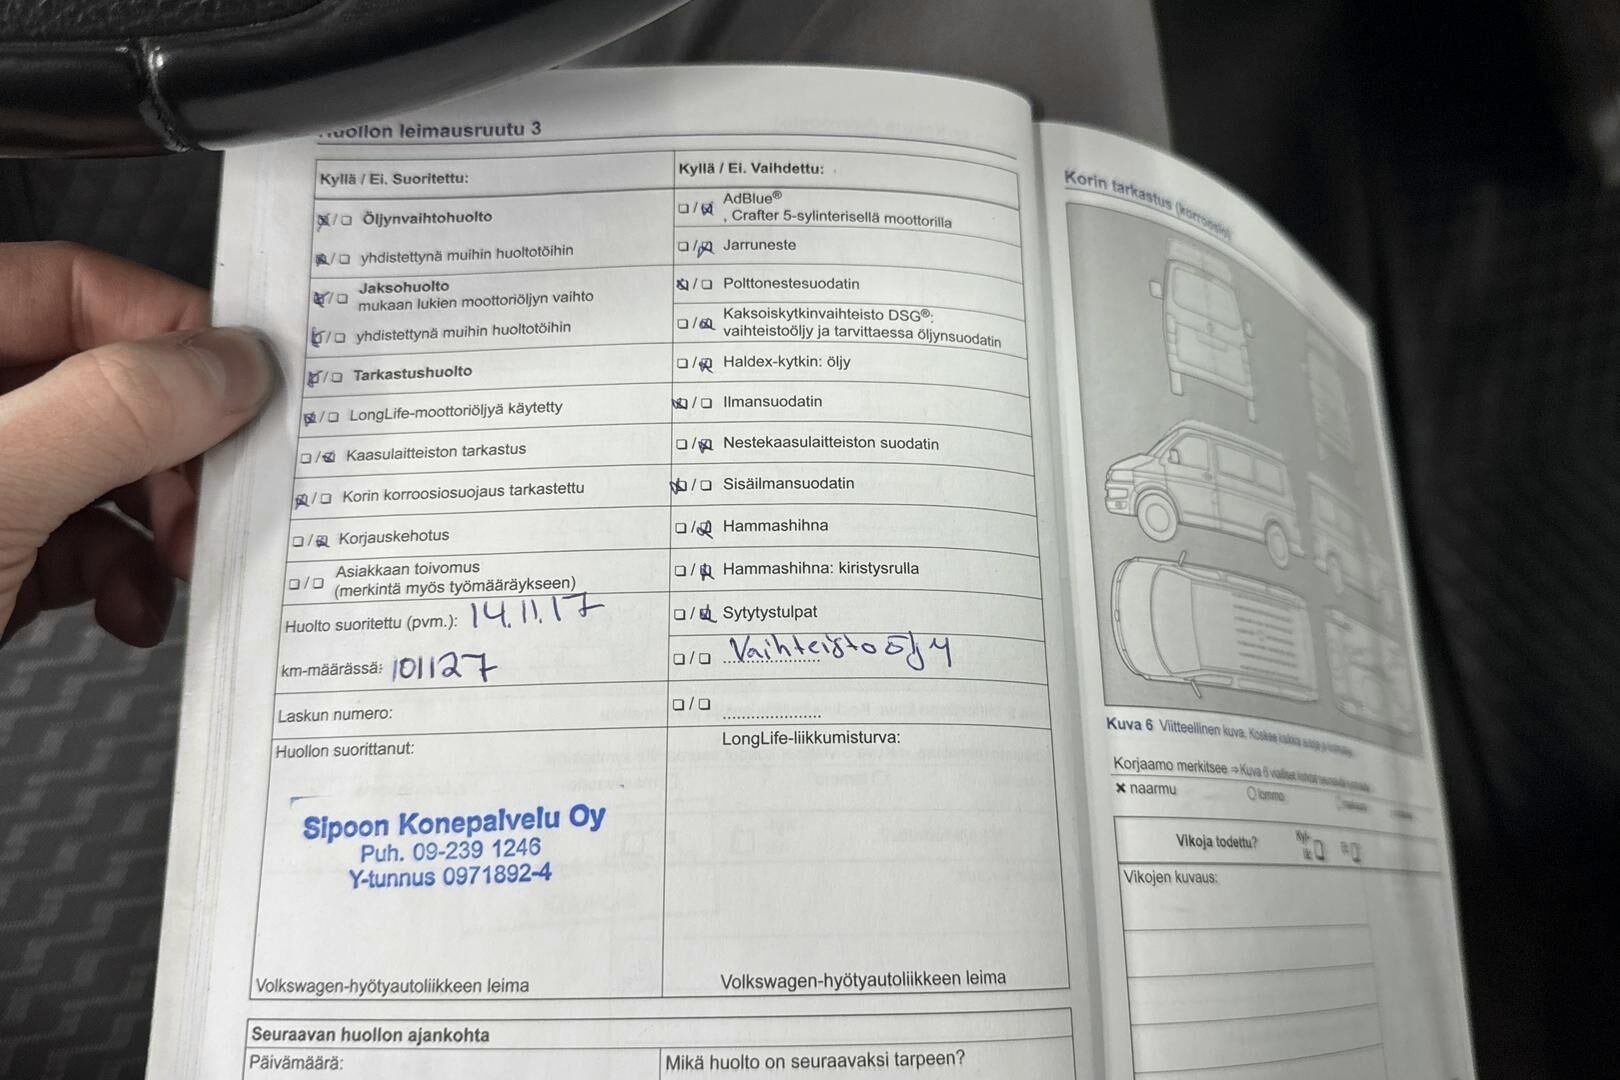 Huollon leimausruutu 3
Kyllä / Ei. Suoritettu:
Öljynvaihtohuolto
yhdistettynä muihin huoltotöihin
Jaksohuolto
mukaan lukien moottoriöljyn vaihto
yhdistettynä muihin huoltotöihin
Tarkastushuolto
LongLife-moottoriöljyä käytetty
Kaasulaitteiston tarkastus
Korin korroosiosuojaus tarkastettu
Korjauskehotus
Asiakkaan toivomus
(merkintä myös työmääräykseen)
Huolto suoritettu (pvm.): 14.11.17
km-määrässä: 101127
Laskun numero:
Huollon suorittanut:
Sipoon Konepalvelu Oy
Puh. 09-239 1246
Y-tunnus 0971892-4
Volkswagen-hyötyautoliikkeen leima
Kyllä / Ei. Vaihdettu:
AdBlue®
, Crafter 5-sylinterisellä moottorilla
Jarruneste
Polttonestesuodatin
Kaksoiskytkinvaihteisto DSG®:
vaihteistoöljy ja tarvittaessa öljynsuodatin
Haldex-kytkin: öljy
Ilmansuodatin
Nestekaasulaitteiston suodatin
Sisäilmansuodatin
Hammashihna
Hammashihna: kiristysrulla
Sytytystulpat
Vaihteistoöljy
LongLife-liikkumisturva:
Volkswagen-hyötyautoliikkeen leima
Seuraavan huollon ajankohta
Päivämäärä:
Mikä huolto on seuraavaksi tarpeen?
Korin tarkastus (korroosio)
Kuva 6 Viitteellinen kuva. Koskee kaikkia
Korjaamo merkitsee ⇒ Kuva 6
✖ naarmu
lommo
Vikoja todettu?
Vikojen kuvaus: